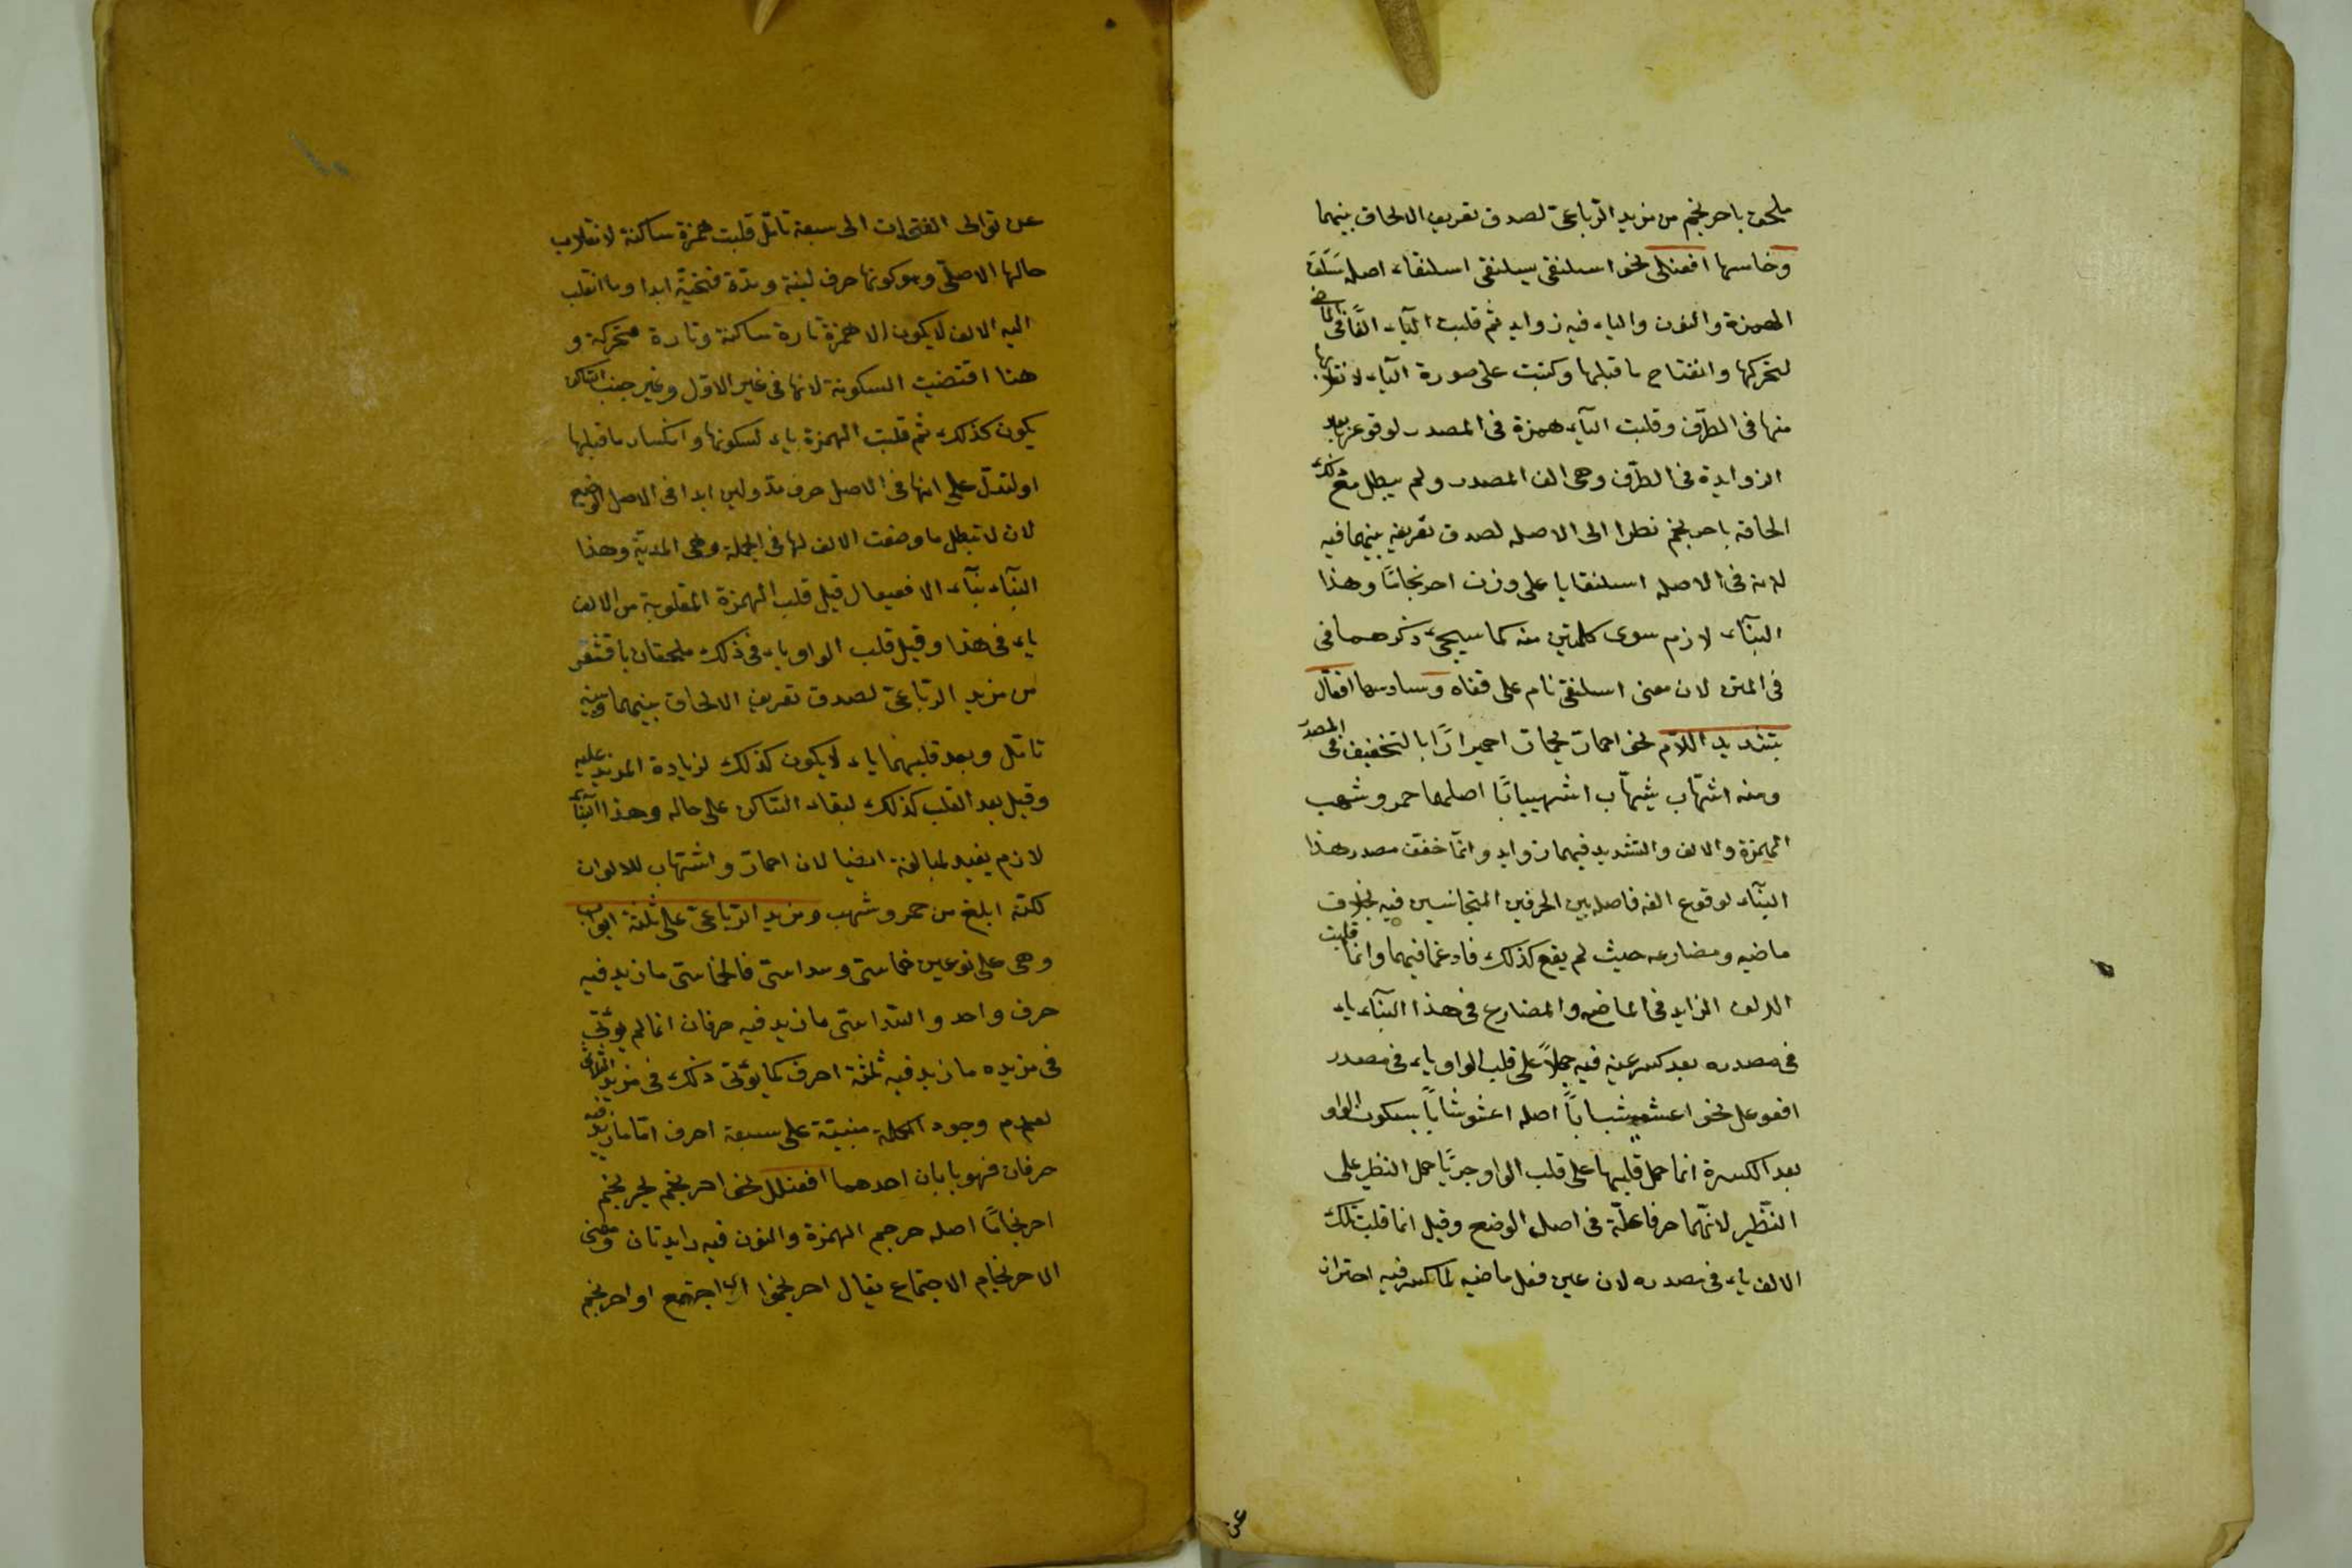 ملحق باحرنجم من مزيد الرباعىّ لصدق تعريف الالحاق بينهما
وخامسها افعنلى نحو اسلنقى يسلنقى اسلنقاء اصله سَلَقَ
الهمزة والنون والياء فيه زوايد ثم قلبت الياء الفًا فى الماضى
لتحركها وانفتاح ما قبلها وكتبت على صورة الياء لانقلابها
منها فى الطرف وقلبت الياء همزة فى المصدر لوقوعها بعد
الزوايدة فى الطرف وهى الف المصدر ولم يبطل مع ذلك
الحاقه باحرنجم نظرا الى الاصله لصدق تعريفه بينهما فيه
لانه فى الاصله اسلنقايا على وزن احرنجامًا وهذا
البناء لازم سوى كلمتين منه كما سيجىء ذكرهما فى
فى المتن لان معنى اسلنقى نام على قفاه وسادسها افعالّ
بتشديد اللام نحو احمارّ يحمارّ احميرارًا بالتخفيف فى المصدر
ومنه اشهابّ يشهابّ اشهيبابًا اصلهما حمر وشهب
الهمزة والالف والتشديد فيهما زوايد وانما خفف مصدر هذا
البناء لوقوع الفه فاصله بين الحرفين المتجانسين فيه بخلاف
ماضيه ومضارعه حيث لم يقع كذلك فادغما فيهما وانما قلبت
الالف الزايد فى الماضى والمضارع فى هذا البناء ياء
فى مصدره بعد كسر عينه فيه حملاً على قلب الواو ياء فى مصدر
افعوعل نحو اعشوشب اصله اعشوشابًا بسكون الواو
بعد الكسرة انما حمل قلبها على قلب الواو جريًا حمل النظير على
النظير لانهما حرفا علّة فى اصل الوضع وقيل انما قلبت تلك
الالف ياء فى مصدره لان عين فعل ماضيه لما كسر فيه احتراز
عن
عن توالى الفتحات الى سبعة تأمّل قلبت همزة ساكنة لانقلاب
حالها الاصلى وهو كونها حرف لينة ومدّة فتحيّة ابدا وما انقلب
اليه الالف لا يكون الا همزة تارة ساكنة وتارة متحركة و
هنا اقتضيت السكونة لانها فى غير الاول وغير جنب الساكن
يكون كذلك ثم قلبت الهمزة ياء لسكونها وانكسار ما قبلها
او لتدلّ على انها فى الاصل حرف مدّ ولين ابدا فى الاصل الوضع
لان لا تبطل ما وضعت الالف لها فى الجملة وهى المدّية وهذا
البناء بناء الافعيعال قيل قلب الهمزة المقلوبة من الالف
ياء فى هذا وقيل قلب الواو ياء فى ذلك ملحقان باقشعر
من مزيد الرباعىّ لصدق تعريف الالحاق بينهما وبينه
تأمّل وبعد قلبهما ياء لا يكون كذلك لزيادة المزيد عليه
وقيل بعد القلب كذلك لبقاء الساكن على حاله وهذا البناء
لازم يفيد لمبالغة ايضا لان احمارّ واشهابّ للالوان
لكنه ابلغ من حمر وشهب ومزيد الرباعىّ على ثلثة ابواب
وهى على نوعين خماسىّ وسداسىّ فالخماسىّ ما زيد فيه
حرف واحد والسداسىّ ما زيد فيه حرفان انما لم يؤتى
فى مزيده ما زيد فيه ثلثة احرف كما يؤتى ذلك فى مزيد الثلاثى
لعدم وجود الكلمة مبنيّة على سبعة احرف امّا ما زيد فيه
حرفان فهو بابان احدهما افعنلل نحو احرنجم يحرنجم
احرنجامًا اصله حرجم الهمزة والنون فيه زايدتان ومعنى
الاحرنجام الاجتماع يقال احرنجموا اى اجتمع او احرنجم